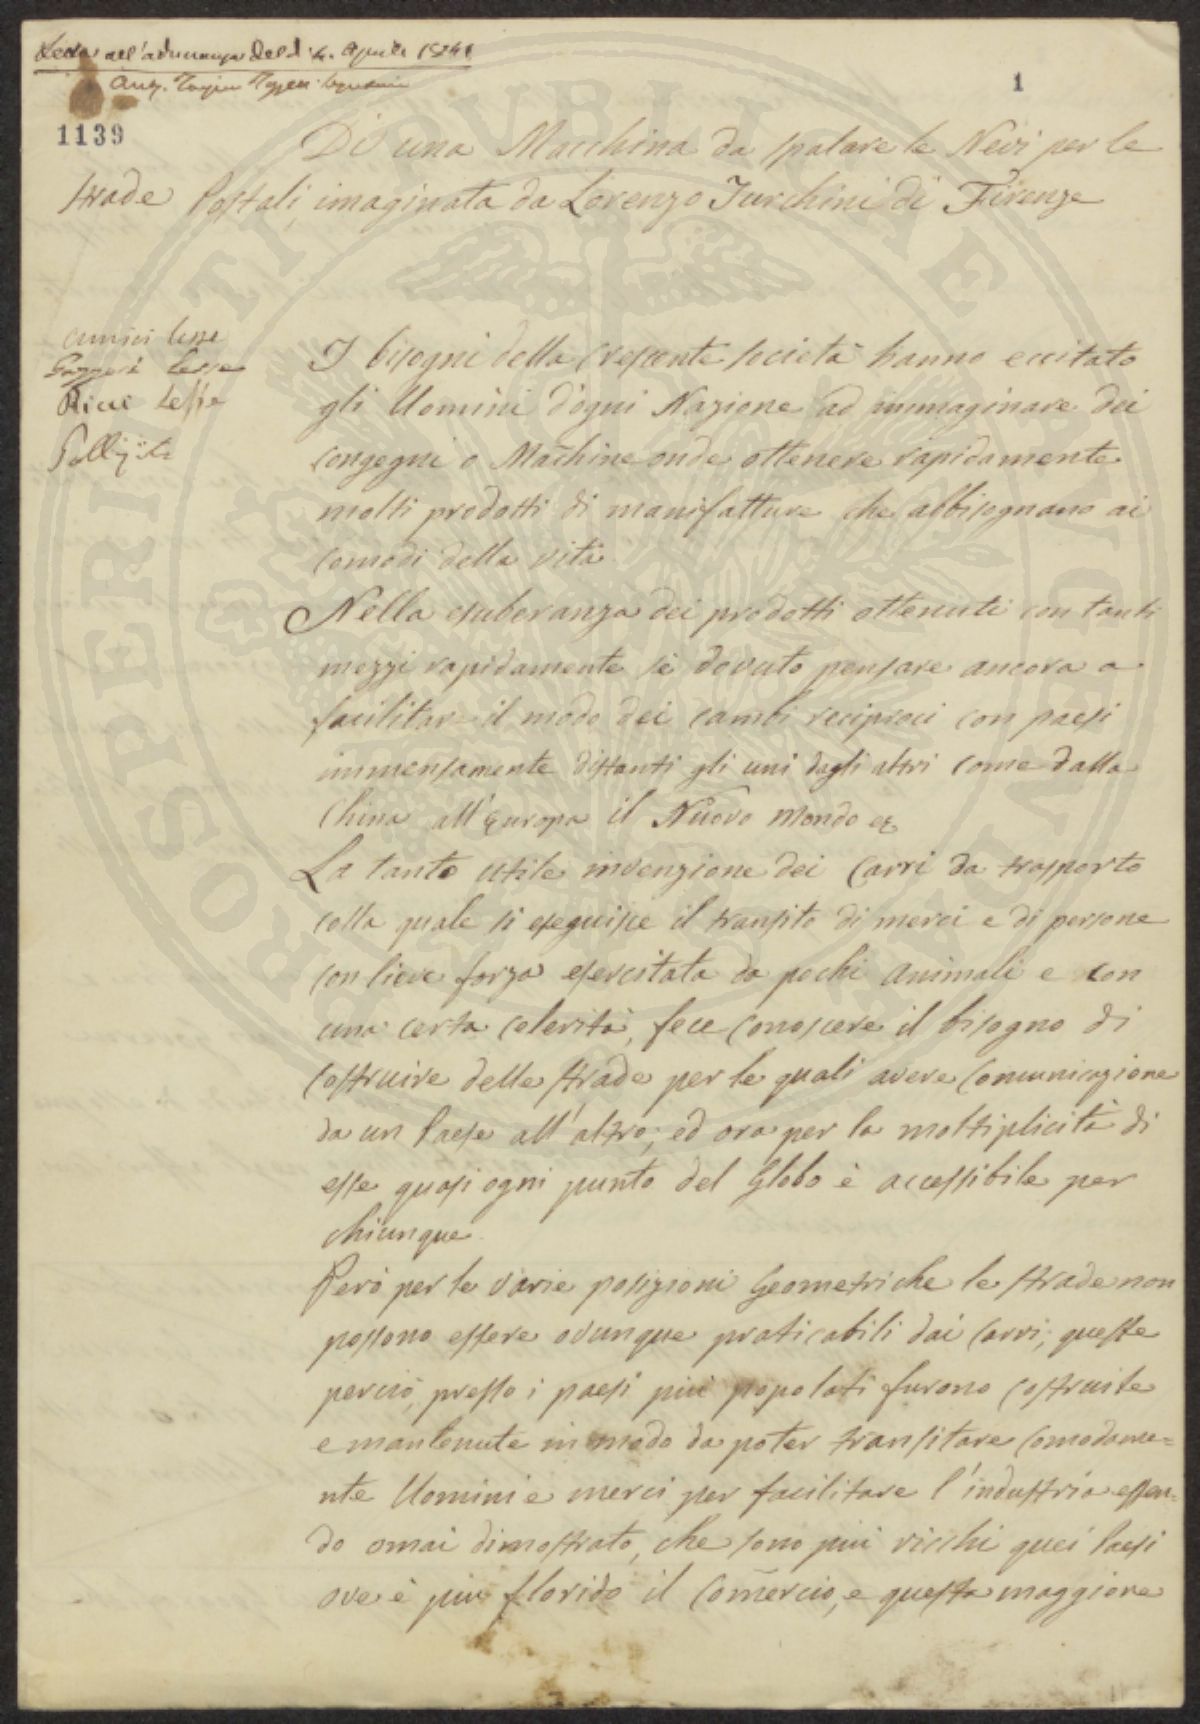 Letta all'adunanza del dì 4. Aprile 1841
Aug.
1
1139
Di una Macchina da spalare le Nevi per le
strade Postali, imaginata da Lorenzo Turchini di Firenze
Amici lesse
Gazzeri lesse
Rive lesse
I bisogni della crescente società hanno eccitato
gli Uomini d'ogni Nazione ad immaginare dei
congegni o Machine onde ottenere rapidamente
molti prodotti di manifatture che abbisognano ai
comodi della vita
Nella esuberanza dei prodotti ottenuti con tanti
mezzi rapidamente si è dovuto pensare ancora a
facilitare il modo dei cambi reciproci con paesi
immensamente distanti gli uni dagli altri come dalla
China all'Europa il Nuovo Mondo ec
La tanto utile invenzione dei Carri da trasporto
colla quale si eseguisce il transito di merci e di persone
con lieve forza esercitata da pochi animali e con
una certa celerità, fece conoscere il bisogno di
costruire delle strade per le quali avere comunicazione
da un Paese all'altro; ed ora per la moltiplicità di
esse quasi ogni punto del Globo è accessibile per
chiunque.
Però per le varie posizioni Geometriche le strade non
possono essere ovunque praticabili dai carri; queste
perciò, presso i paesi più popolati furono costruite
e mantenute in modo da poter transitare comodame=
nte Uomini e merci per facilitare l'industria essen=
do omai dimostrato, che sono più ricchi quei Paesi
ove è più florido il Comercio, e questa maggiore
PROSPERITATI PVBLICAE AVGENDAE